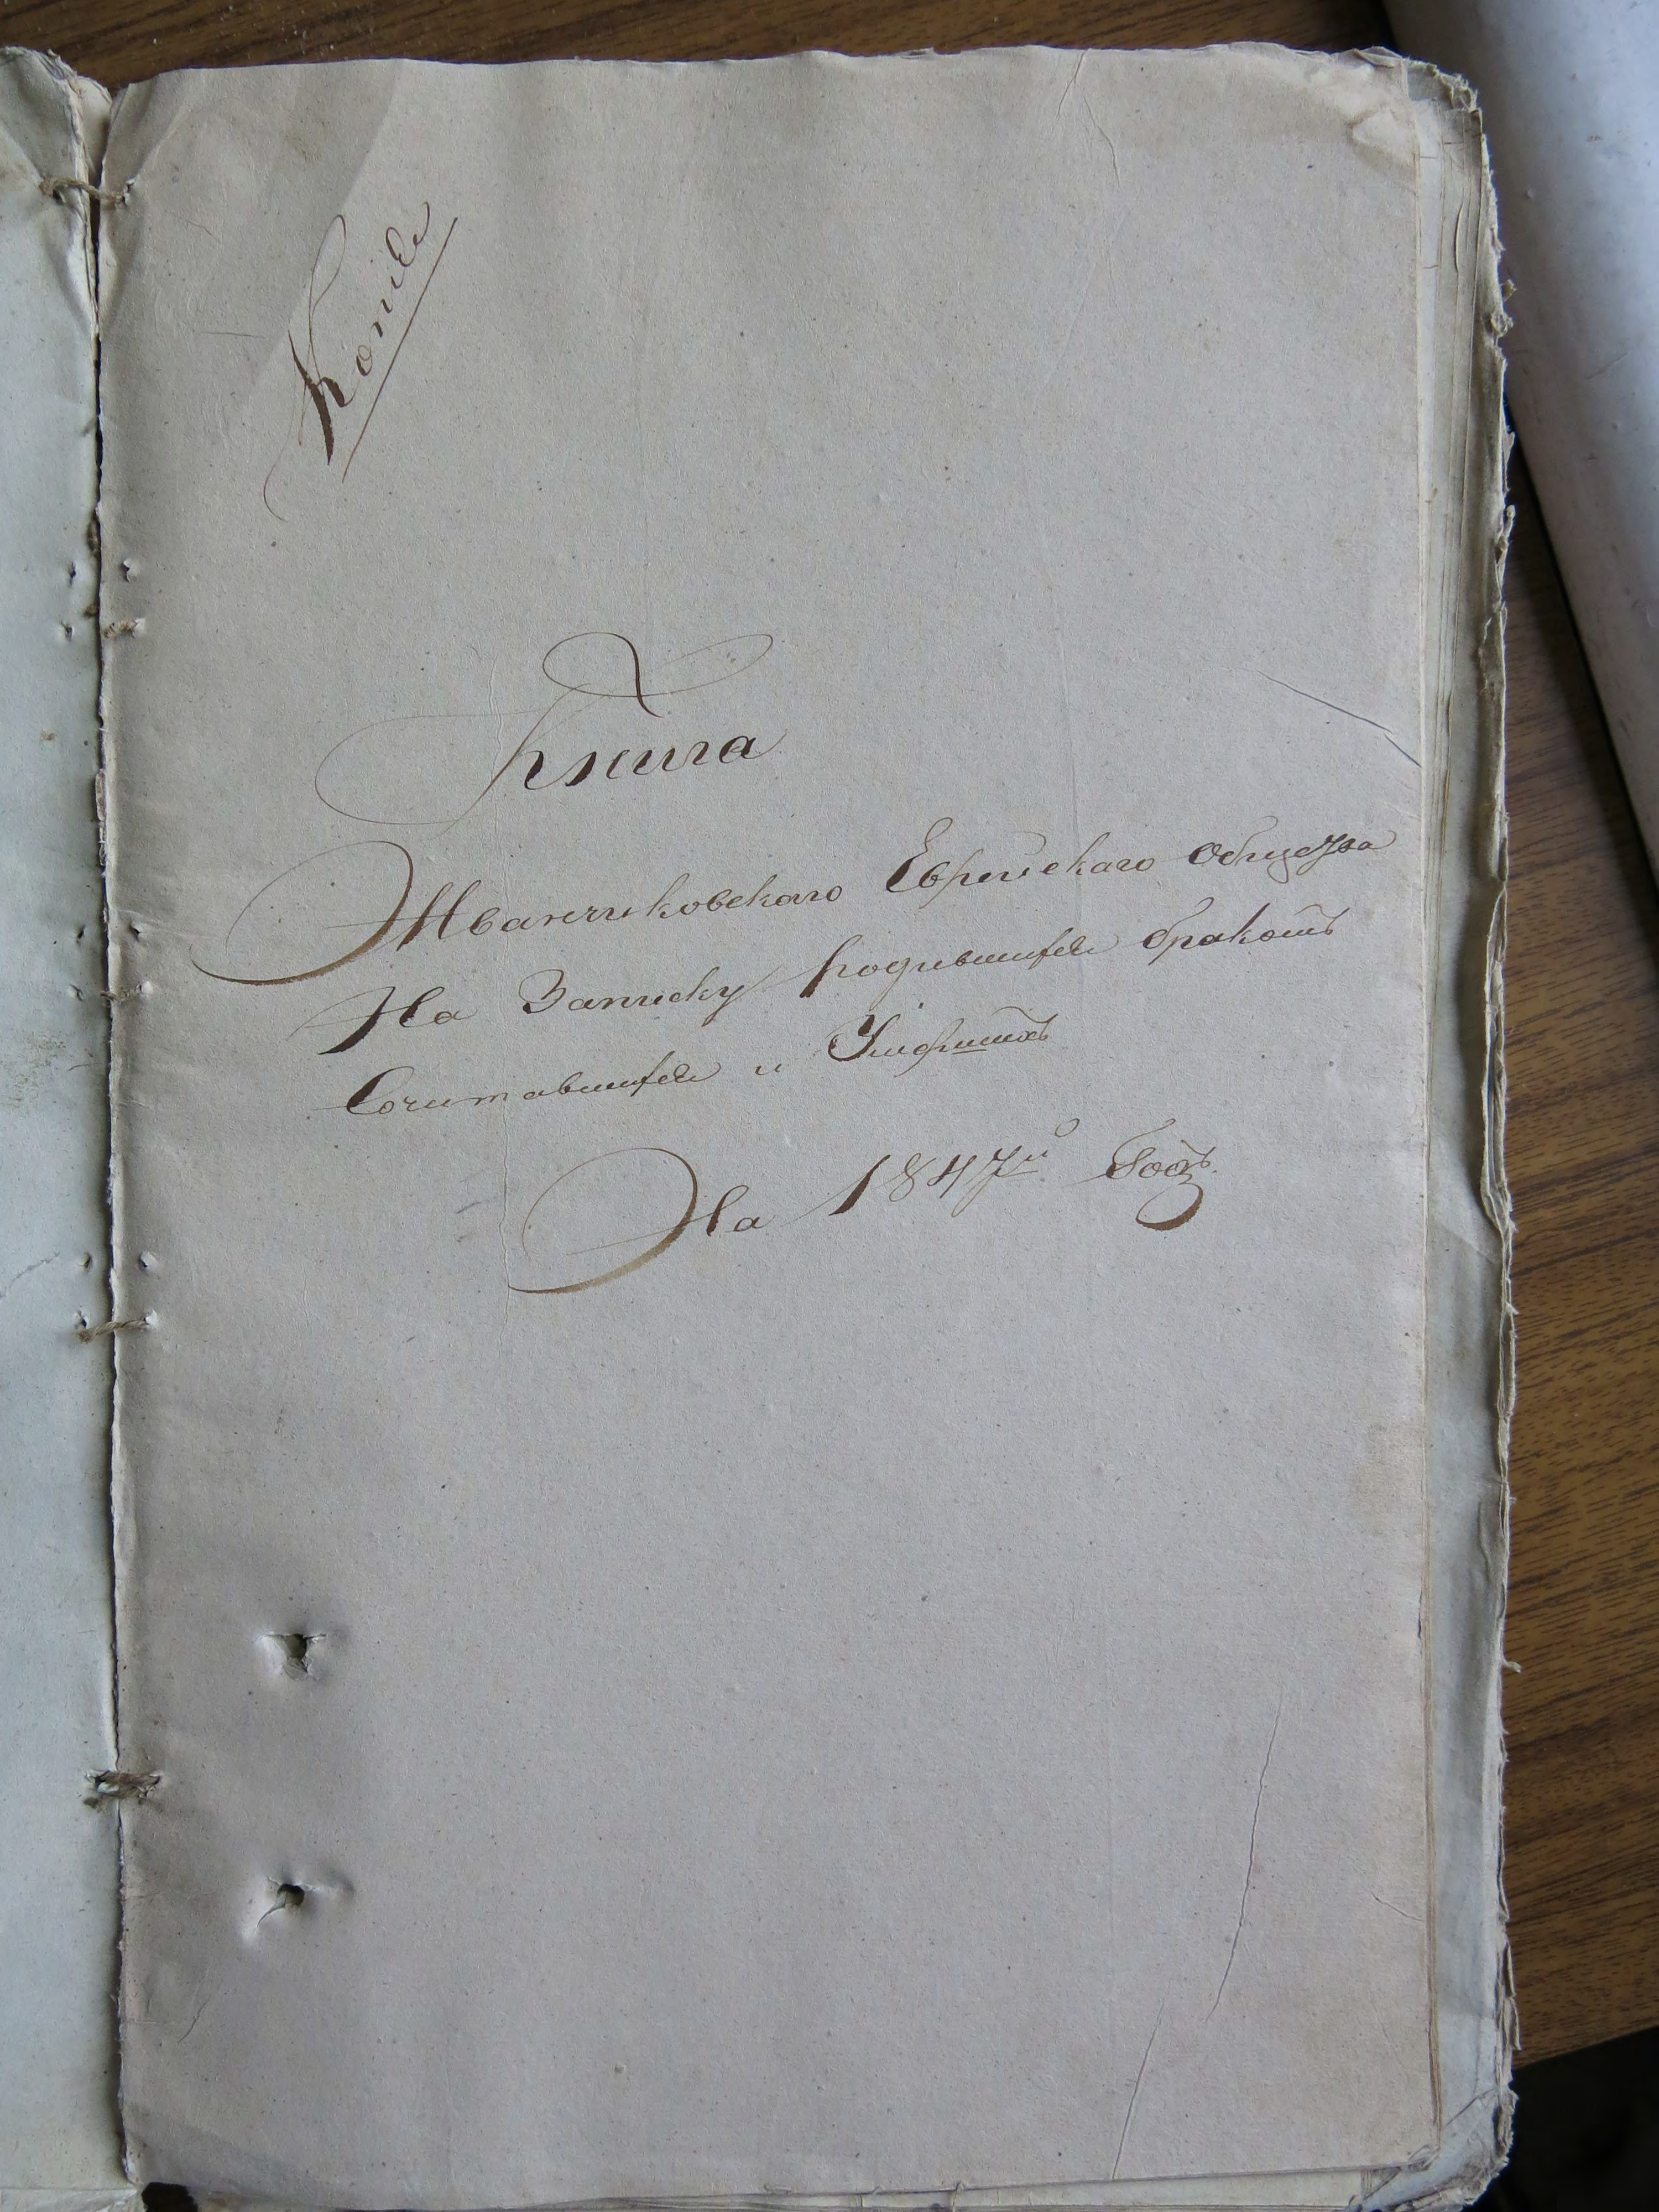 Копія
Книга
Жванчиковскаго Еврейскаго общества
На Записку родившихся бракомъ
Сочитавшихся и Умершихъ
На 1847й Годъ.